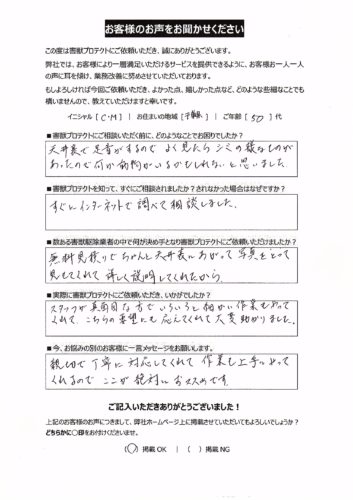 お客様のお声をお聞かせください
この度は害獣プロテクトにご依頼いただき、誠にありがとうございます。
弊社では、お客様により一層満足いただけるサービスを提供できるように、お客様お一人一人
の声に耳を傾け、業務改善に努めさせていただいております。
もしよろしければ今回ご依頼いただき、よかった点、嬉しかった点など、どのような些細なことでも
構いませんので、教えていただけますと幸いです。
イニシャル [ C.M ] | お住まいの地域 [ 千葉県 ] | ご年齢 [ 50 ] 代
■ 害獣プロテクトにご相談いただく前に、どのようなことでお困りでしたか?
天井裏で足音がするので よく見たら シミの様なものが
あったので何か動物がいるかもしれないと思いました。
■ 害獣プロテクトを知って、すぐにご相談されましたか?されなかった場合はなぜですか?
すぐにインターネットで調べて相談しました。
■ 数ある害獣駆除業者の中で何が決め手となり害獣プロテクトにご依頼いただけましたか?
無料見積りでちゃんと天井裏にあがって写真をとって
見せてくれて詳しく説明してくれたから。
■ 実際に害獣プロテクトにご依頼いただき、いかがでしたか?
スタッフが真面目な方でいろいろと細かい作業もやって
くれて、こちらの要望にも応えてくれて大変助かりました。
■ 今、お悩みの別のお客様に一言メッセージをお願いします。
親切で丁寧に対応してくれて 作業も上手にやって
くれるので ここが絶対に おススめです。
ご記入いただきありがとうございました!
上記のお客様のお声につきまして、弊社ホームページ上に掲載させていただいてもよろしいでしょうか?
どちらかに〇印をお付けくださいませ。
(〇) 掲載 OK | ( ) 掲載 NG